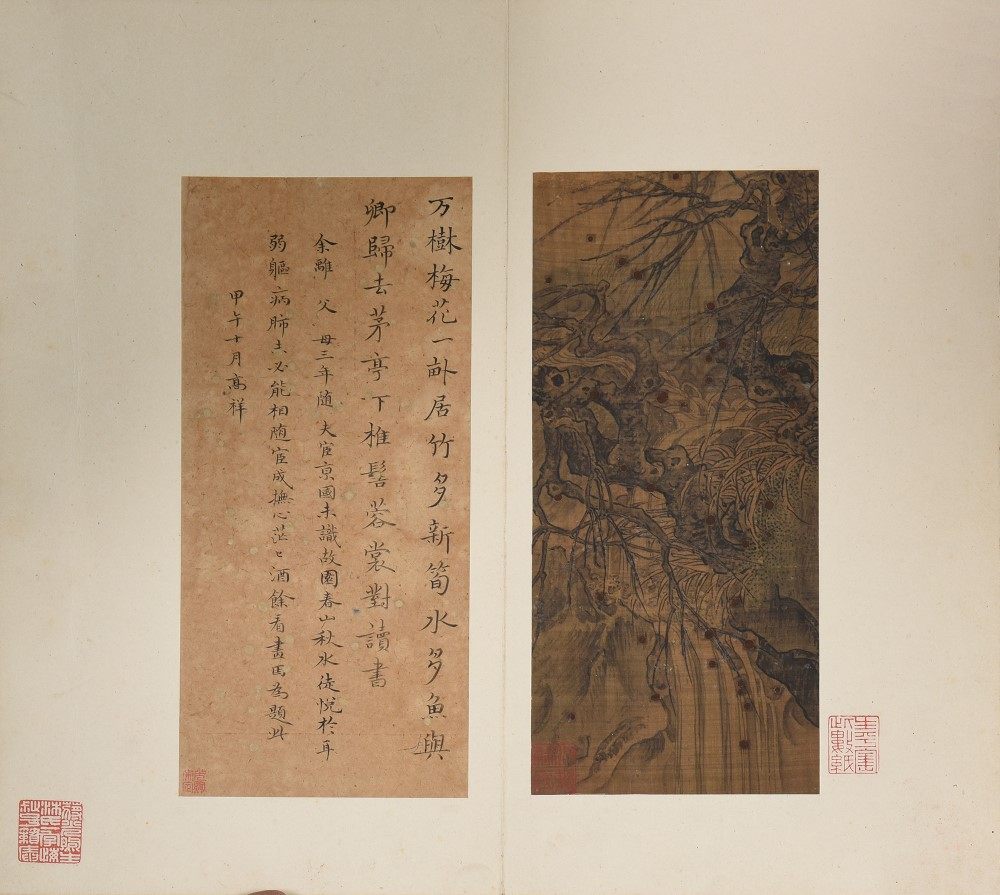 万樹梅花一畝居竹多新筍水多魚與
卿歸去茅亭下椎髻蓉裳對讀書
余離父母三年隨夫宦京國未識故園春山秋水徒悅於耳
弱軀病肺未必能相隨宦成撫心茫〻酒餘看畫因為題此
甲午十月高祥